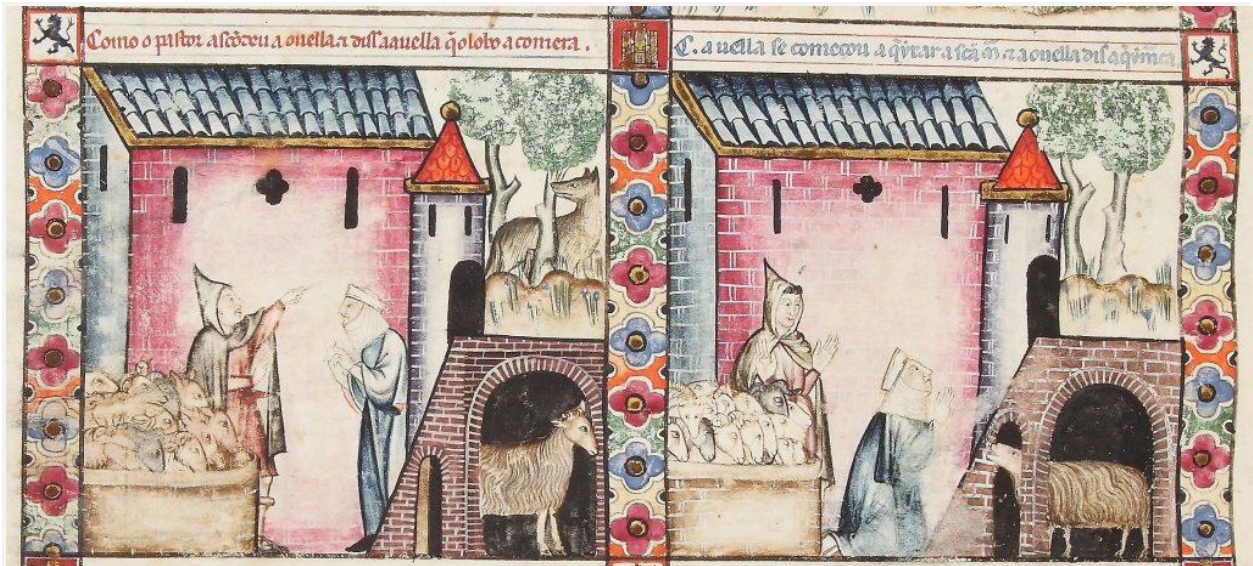 Como o pastor ascõdeu a ouella ⁊ dissa a uella q̃ o lobo a comera.
C. a uella se começou a q̃yxar a scã m̃ ⁊ a ouella dis aqimea